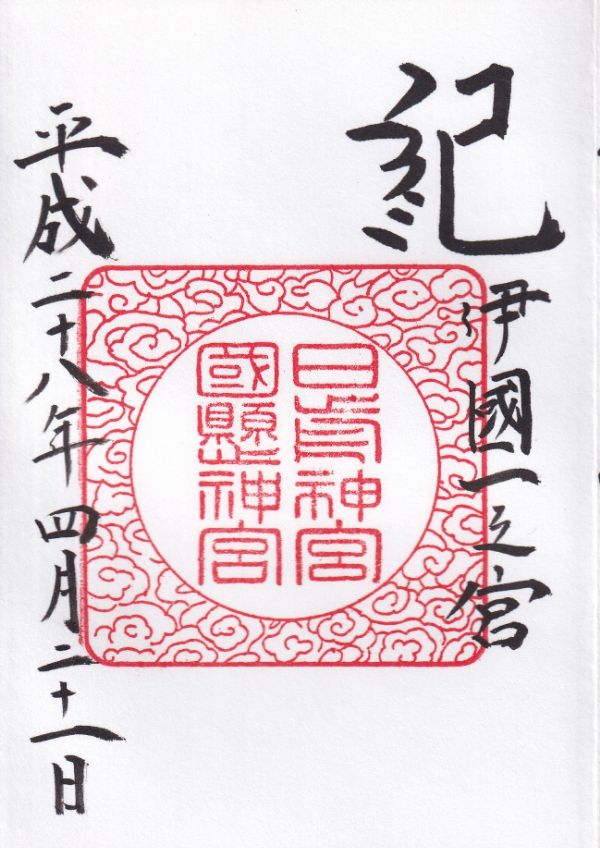 紀伊國一之宮
日前神宮
國懸神宮
平成二十八年四月二十一日